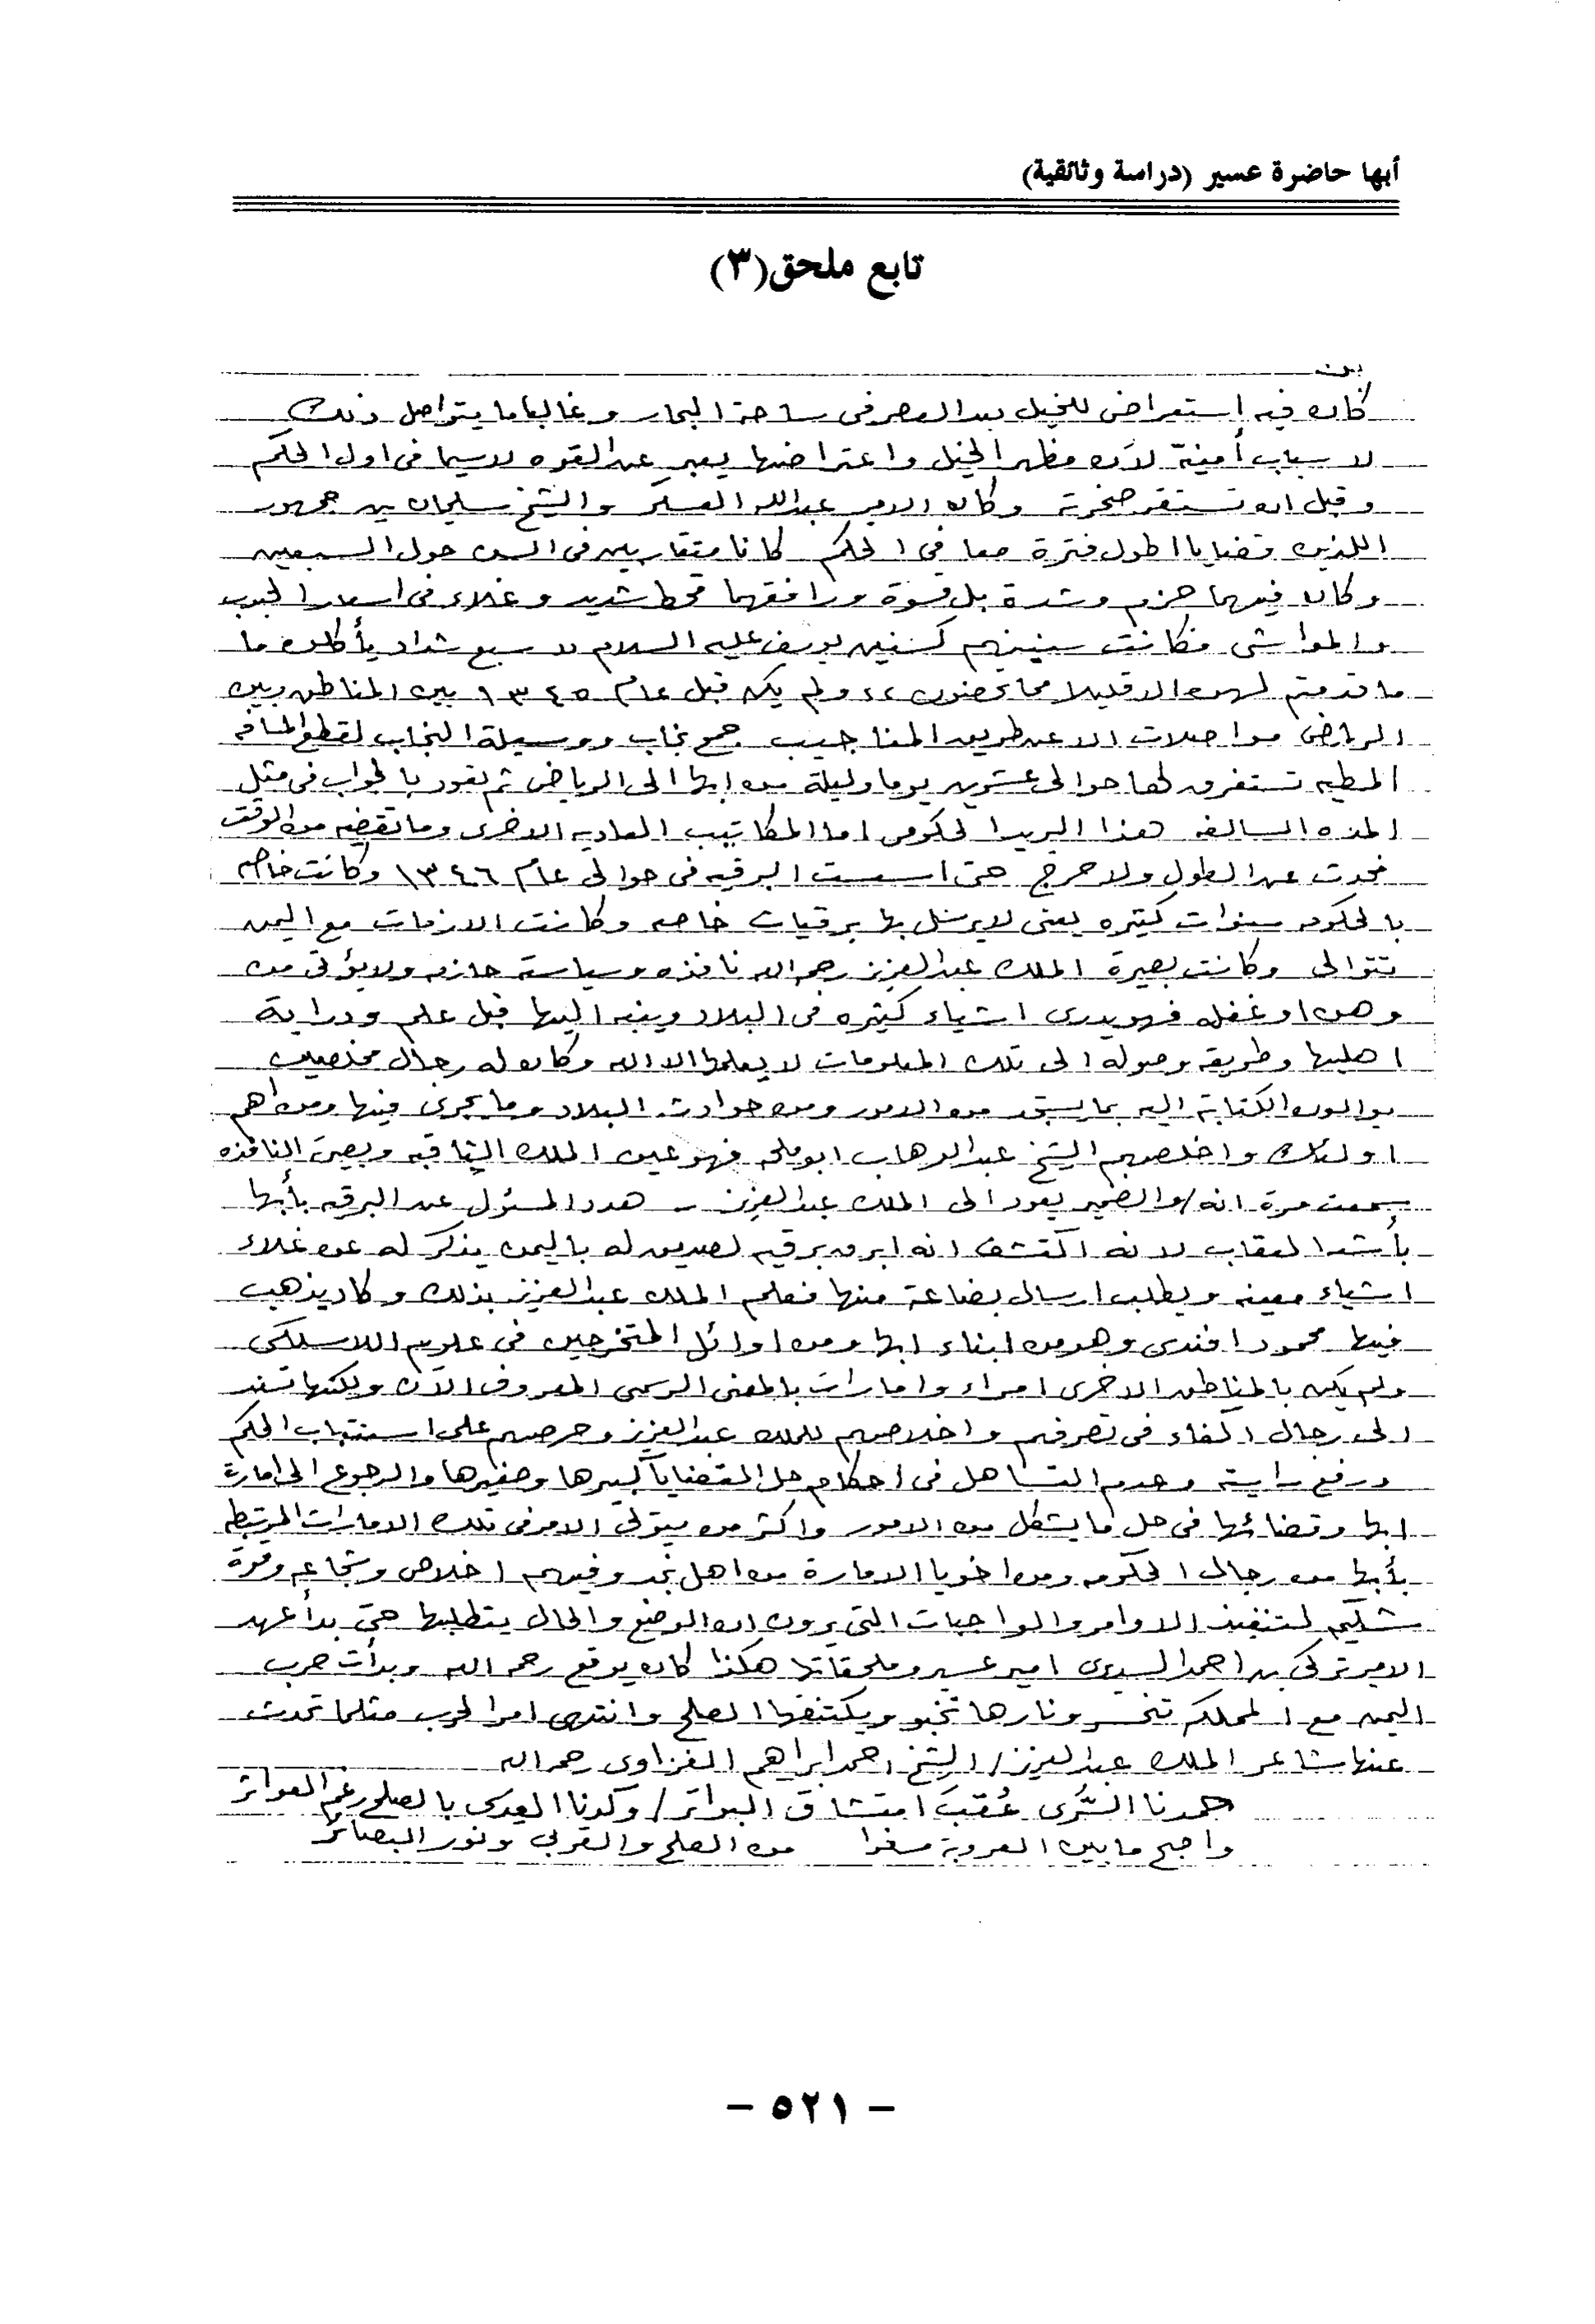 أبها حاضرة عسير (دراسة وثائقية)
تابع ملحق (٣)
كان فيه استعراض للخيل بعد العصر فى ساحة البحار وغالبا ما يتواصل ذلك
لاسباب أمنية لأن مظهر الخيل واعتراضها يعبر عن القوه لاسيما فى اول الحكم
وقبل ان تستقر صخرته وكان الامير عبدالله العسكر والشيخ سليمان بن جمهور
اللذين قضايا اطول فترة معا فى الحكم كانا متقاربين فى السن حول السبعين
وكان فيهما حزم وشدة بل قسوة ورافقهما قحط شديد وغلاء فى اسعار الحبوب
والمواشى فكانت سنينهم كسنين يوسف عليه السلام لا سبع شداد يأكلون ما
ما قدمتم لهن الا قليلا مما تحصنون ،، ولم يكن قبل عام ١٣٤٥ بين المناطق وبين
الرياض مواصلات الا عن طريق المناجيب جمع نجاب ووسيلة النجاب لقطع المسافه
المطيه تستغرق لها حوالى عشرين يوما وليلة من ابها الى الرياض ثم تعود بالجواب فى مثل
المده السالفه هذا البريد الحكومى اما المكاتيب العاديه الاخرى وما تقضيه من الوقت
فحدث عن الطول ولا حرج حتى اسست البرقيه فى حوالى عام ١٣٤٦ وكانت خاصه
بالحكومه سنوات كثيره يعنى لا يرسل بها برقيات خاصه وكانت الازمات مع اليمن
تتوالى وكانت بصيرة الملك عبدالعزيز رحمه الله نافذه وسياسته حازمه ولا يؤتى من
وهن او غفله فهو يدرى اشياء كثيره فى البلاد وينبه اليها قبل علم ودراية
اهلها وطريقه وصوله الى تلك المعلومات لا يعلمها الا الله وكان له رجال مخلصين
يوالون الكتابة اليه بما يستجد من الامور ومن حوادث البلاد وما يجرى فيها ومن اهم
اولئك واخلصهم الشيخ عبدالوهاب ابوملحه فهو عين الملك الثاقبه وبصيرته النافذه
سمعت مرة انه / والضمير يعود الى الملك عبدالعزيز - هدد المسئول عن البرقيه بأبها
بأشد العقاب لانه اكتشف انه ابرق برقيه لصديق له باليمن يذكر له عن غلاء
اشياء معينه ويطلب ارسال بضاعة منها فعلم الملك عبدالعزيز بذلك وكاد يذهب
فيها محمود افندى وهو من ابناء ابها ومن اوائل المتخرجين فى علوم اللاسلكى
ولم يكن بالمناطق الاخرى امراء وامارات بالمعنى الرسمى المعروف الآن ولكنها تسند
الى رجال اكفاء فى تصرفهم واخلاصهم للملك عبدالعزيز وحرصهم على استتباب الحكم
ورفع رايته وعدم التساهل فى احكام حل القضايا كبيرها وصغيرها والرجوع الى امارة
ابها وقضائها فى حل ما يشكل من الامور واكثر من يتولى الامر فى تلك الامارات المرتبطه
بأبها من رجال الحكومه ومن اخويا الامارة من اهل نجد وفيهم اخلاص وشجاعه وقوة
شكيمه لتنفيذ الاوامر والواجبات التى يرون ان الوضع والحال يتطلبها حتى بدأ عهد
الامير تركى بن احمد السديرى امير عسير وملحقاتها هكذا كان يوقع رحمه الله وبدأت حرب
اليمن مع المملكه تنحسر ونارها تخبو ويكتنفها الصلح وانتهى امر الحرب مثلما تحدث
عنها شاعر الملك عبدالعزيز / الشيخ احمد ابراهيم الغزاوى رحمه الله
حمدنا السُّرى عُقب امتشاق البواتر / وكدنا العدى بالصلح رغم العواثر
واصبح ما بين العروبة مسفرا من الصلح والقربى ونور البصائر
- ٥٢١ -